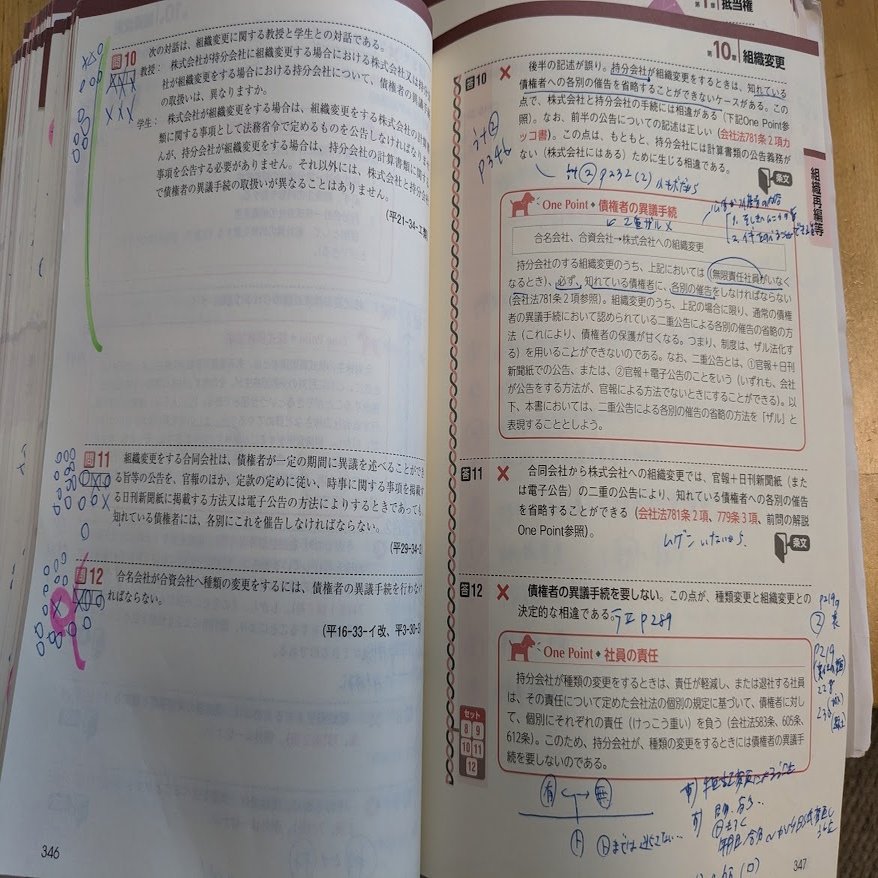 問10 次の対話は、組織変更に関する教授と学生との対話である。
教授： 株式会社が持分会社に組織変更する場合における株式会社又は持分
社が組織変更する場合における持分会社について、債権者の異議手
の取扱いは、異なりますか。
学生： 株式会社が組織変更をする場合は、組織変更をする株式会社の計算
類に関する事項として法務省令で定めるものを公告しなければなりま
んが、持分会社が組織変更をする場合は、持分会社の計算書類に関す
事項を公告する必要がありません。それ以外には、株式会社と持分会
で債権者の異議手続の取扱いが異なることはありません。
(平21-34-エ
問11 組織変更をする合同会社は、債権者が一定の期間に異議を述べることがで
きる旨等の公告を、官報のほか、定款の定めに従い、時事に関する事項を掲載
る日刊新聞紙に掲載する方法又は電子公告の方法によりするときであっても、
知れている債権者には、各別にこれを催告しなければならない。
(平29-34-
問12 合名会社が合資会社へ種類の変更をするには、債権者の異議手続を行わな
ければならない。
(平16-33-イ改、平3-30-
346
第1章 抵当権
第10章 組織変更
答10 × 後半の記述が誤り。持分会社が組織変更をするときは、知れている
債権者への各別の催告を省略することができないケースがある。この
点で、株式会社と持分会社の手続には相違がある（下記One Point参
照）。なお、前半の公告についての記述は正しい（会社法781条2項カ
ッコ書）。この点は、もともと、持分会社には計算書類の公告義務が
ない（株式会社にはある）ために生じる相違である。
条文
P346
組織再編等
One Point◆債権者の異議手続
合名会社、合資会社→株式会社への組織変更
持分会社のする組織変更のうち、上記においては（無限責任社員がいなく
なるとき）、必ず、知れている債権者に、各別の催告をしなければならない
（会社法781条2項参照）。組織変更のうち、上記の場合に限り、通常の債権
者の異議手続において認められている二重公告による各別の催告の省略の方
法（これにより、債権者の保護が甘くなる。つまり、制度は、ザル法化す
る）を用いることができないのである。なお、二重公告とは、①官報＋日刊
新聞紙での公告、または、②官報＋電子公告のことをいう（いずれも、会社
が公告をする方法が、官報による方法でないときにすることができる）。以
下、本書においては、二重公告による各別の催告の省略の方法を「ザル」と
表現することとしよう。
答11 × 合同会社から株式会社への組織変更では、官報＋日刊新聞紙（また
は電子公告）の二重の公告により、知れている債権者への各別の催告
を省略することができる（会社法781条2項、779条3項、前問の解説
One Point参照）。
条文
答12 × 債権者の異議手続を要しない。この点が、種類変更と組織変更との
決定的な相違である。
One Point◆社員の責任
持分会社が種類の変更をするときは、責任が軽減し、または退社する社員
は、その責任について定めた会社法の個別の規定に基づいて、債権者に対し
て、個別にそれぞれの責任（けっこう重い）を負う（会社法583条、605条、
612条）。このため、持分会社が、種類の変更をするときには債権者の異議手
続を要しないのである。
セット
8 9
10 11
12
347